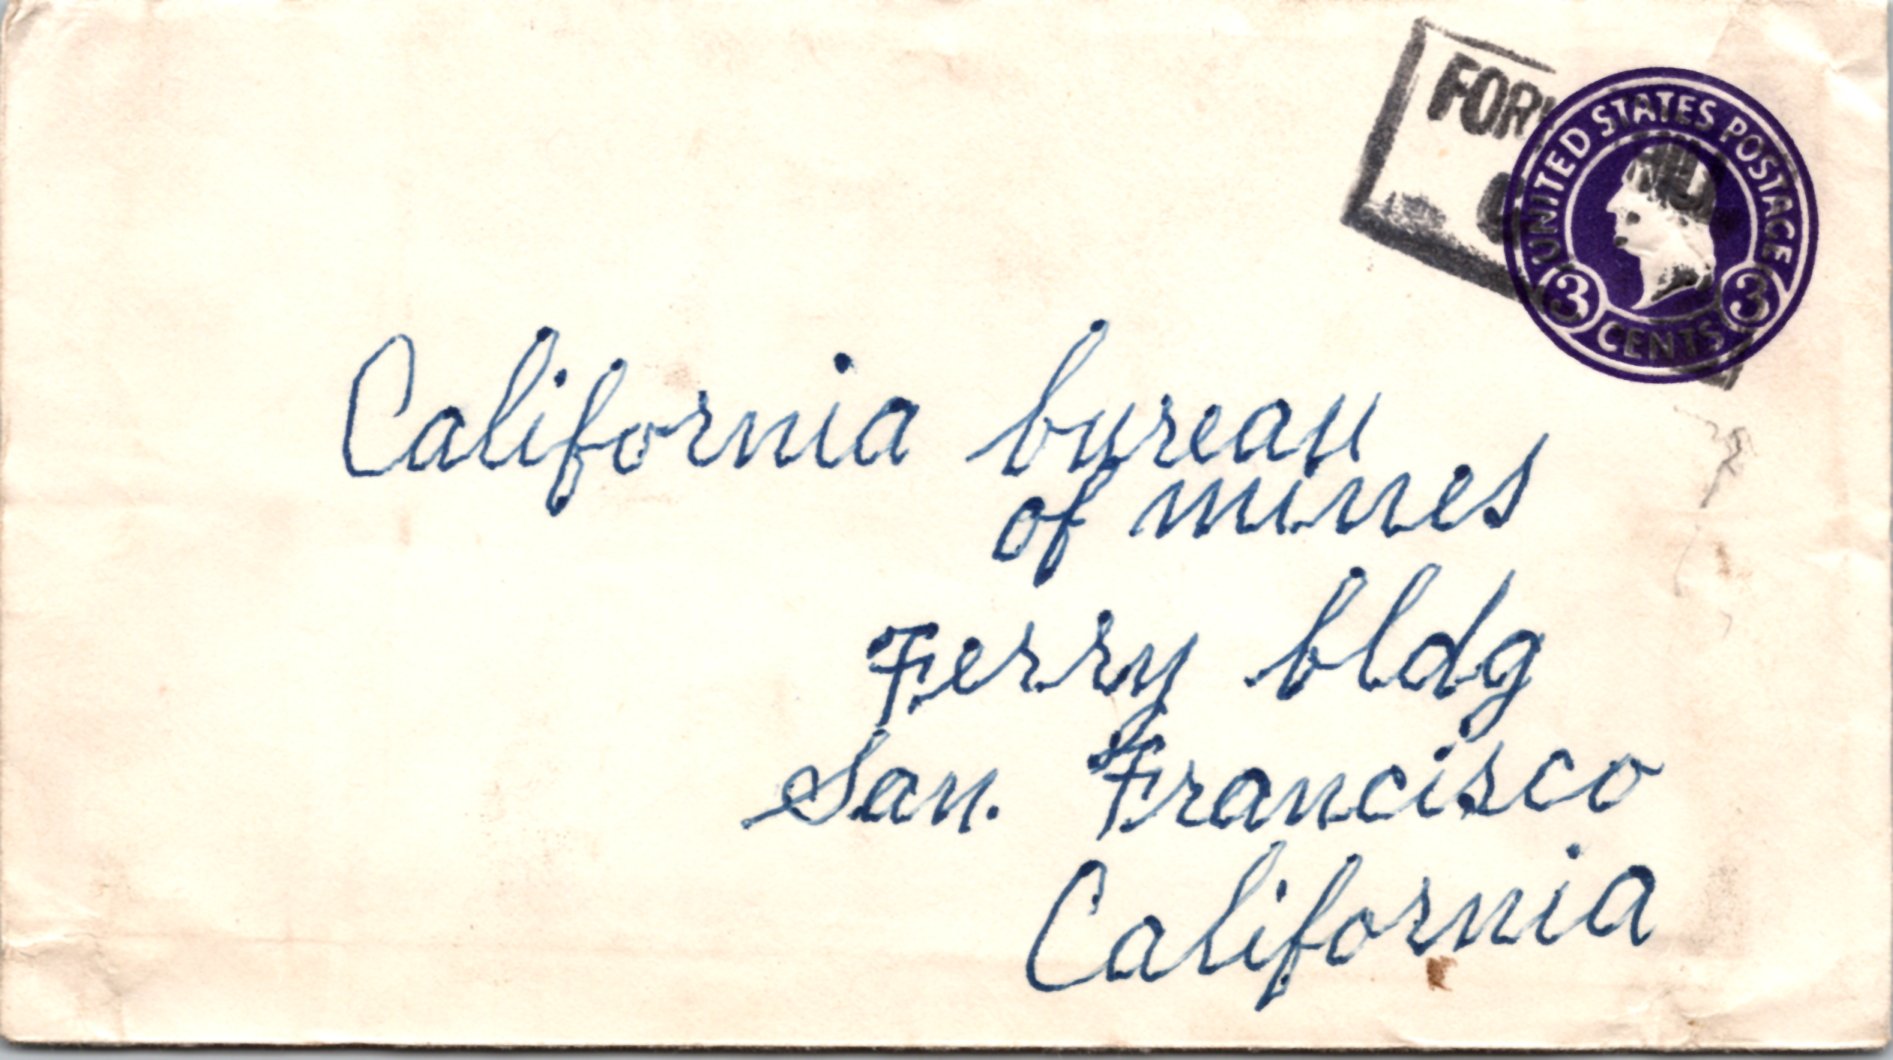 UNITED STATES POSTAGE
3 CENTS 3
California bureau
of mines
Ferry bldg
San. Francisco
California